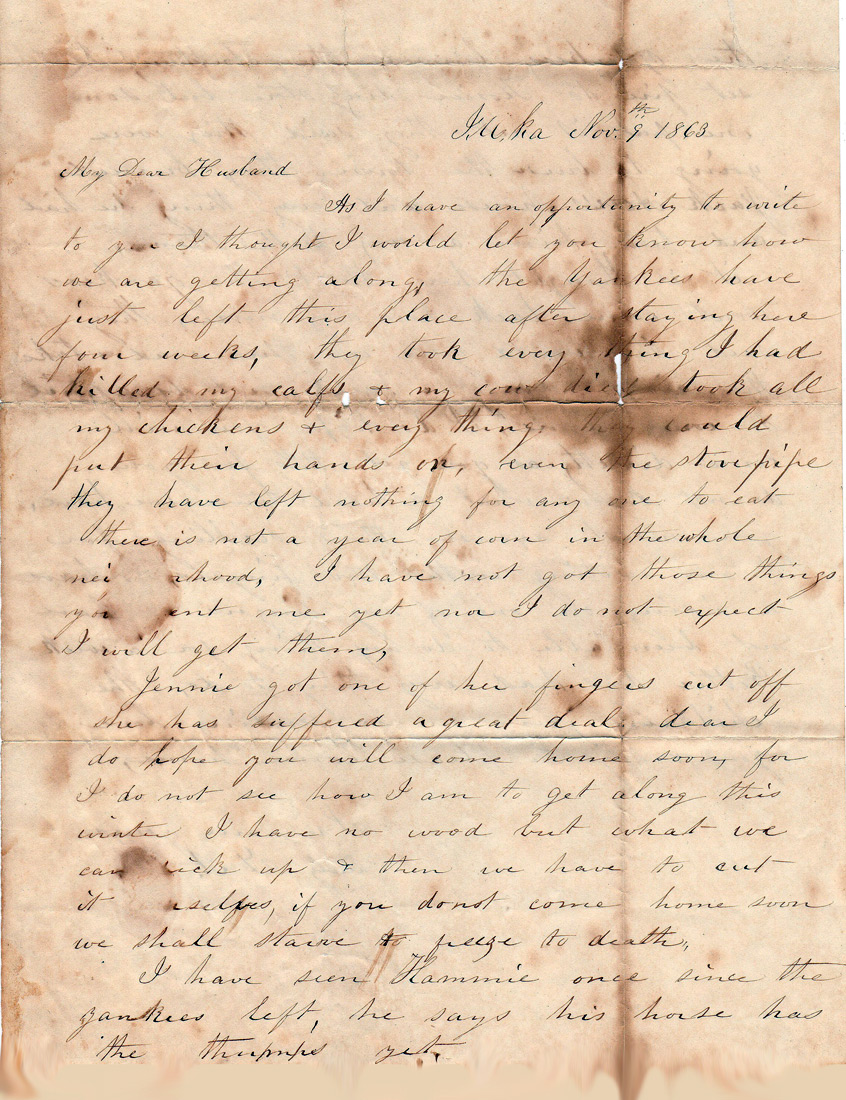 Nov. 9th 1863
My Dear Husband
As I have an opportunity to write
to you I thought I would let you know how
we are getting along, the Yankees have
just left this place after staying here
four weeks, they took every thing I had
killed my calfs & my cow died took all
my chickens & every thing they could
put their hands on, even the stovepipe
they have left nothing for any one to eat
there is not a year of corn in the whole
nei rhood, I have not got those things
you ent me yet nor I do not expect
I will get them,
Jennie got one of her fingers cut off
she has suffered a great deal. dear I
do hope you will come home soon, for
I do not see how I am to get along this
winter I have no wood but what we
can ick up & then we have to cut
it urselfes, if you do not come home soon
we shall starve to freeze to death,
I have seen Hammie once since the
yankees left, he says his horse has
the yet,